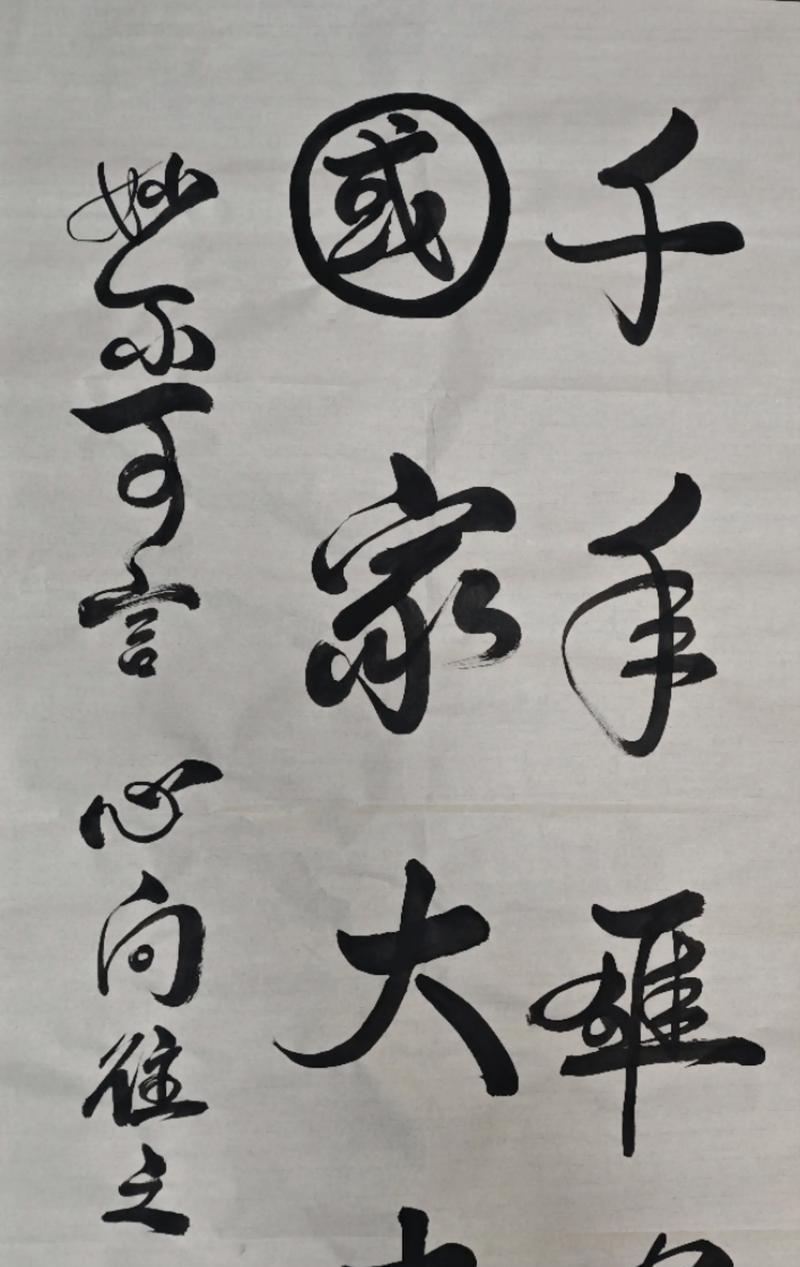 千年
國家大
妙不可言 心向往之